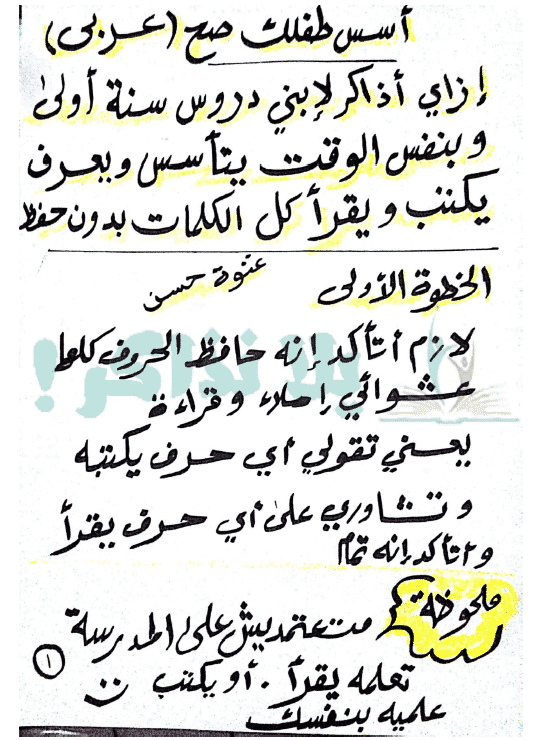 أسس طفلك صح (عربى)
إزاي أذاكر لإبني دروس سنة أولى
وبنفس الوقت يتأسس ويعرف
يكتب ويقرأ كل الكلمات بدون حفظ
الخطوة الأولى
عنوة حسن
لازم أتأكد إنه حافظ الحروف كلها
عشوائي إملاء وقراءة
يعني تقولي أي حرف يكتبه
وتشاوري على أي حرف يقرأ
وأتأكد إنه تمام
ملحوظة
متعتمديش على المدرسة
تعلمه يقرأ . أو يكتب
علميه بنفسك
١
يلا نذاكر!